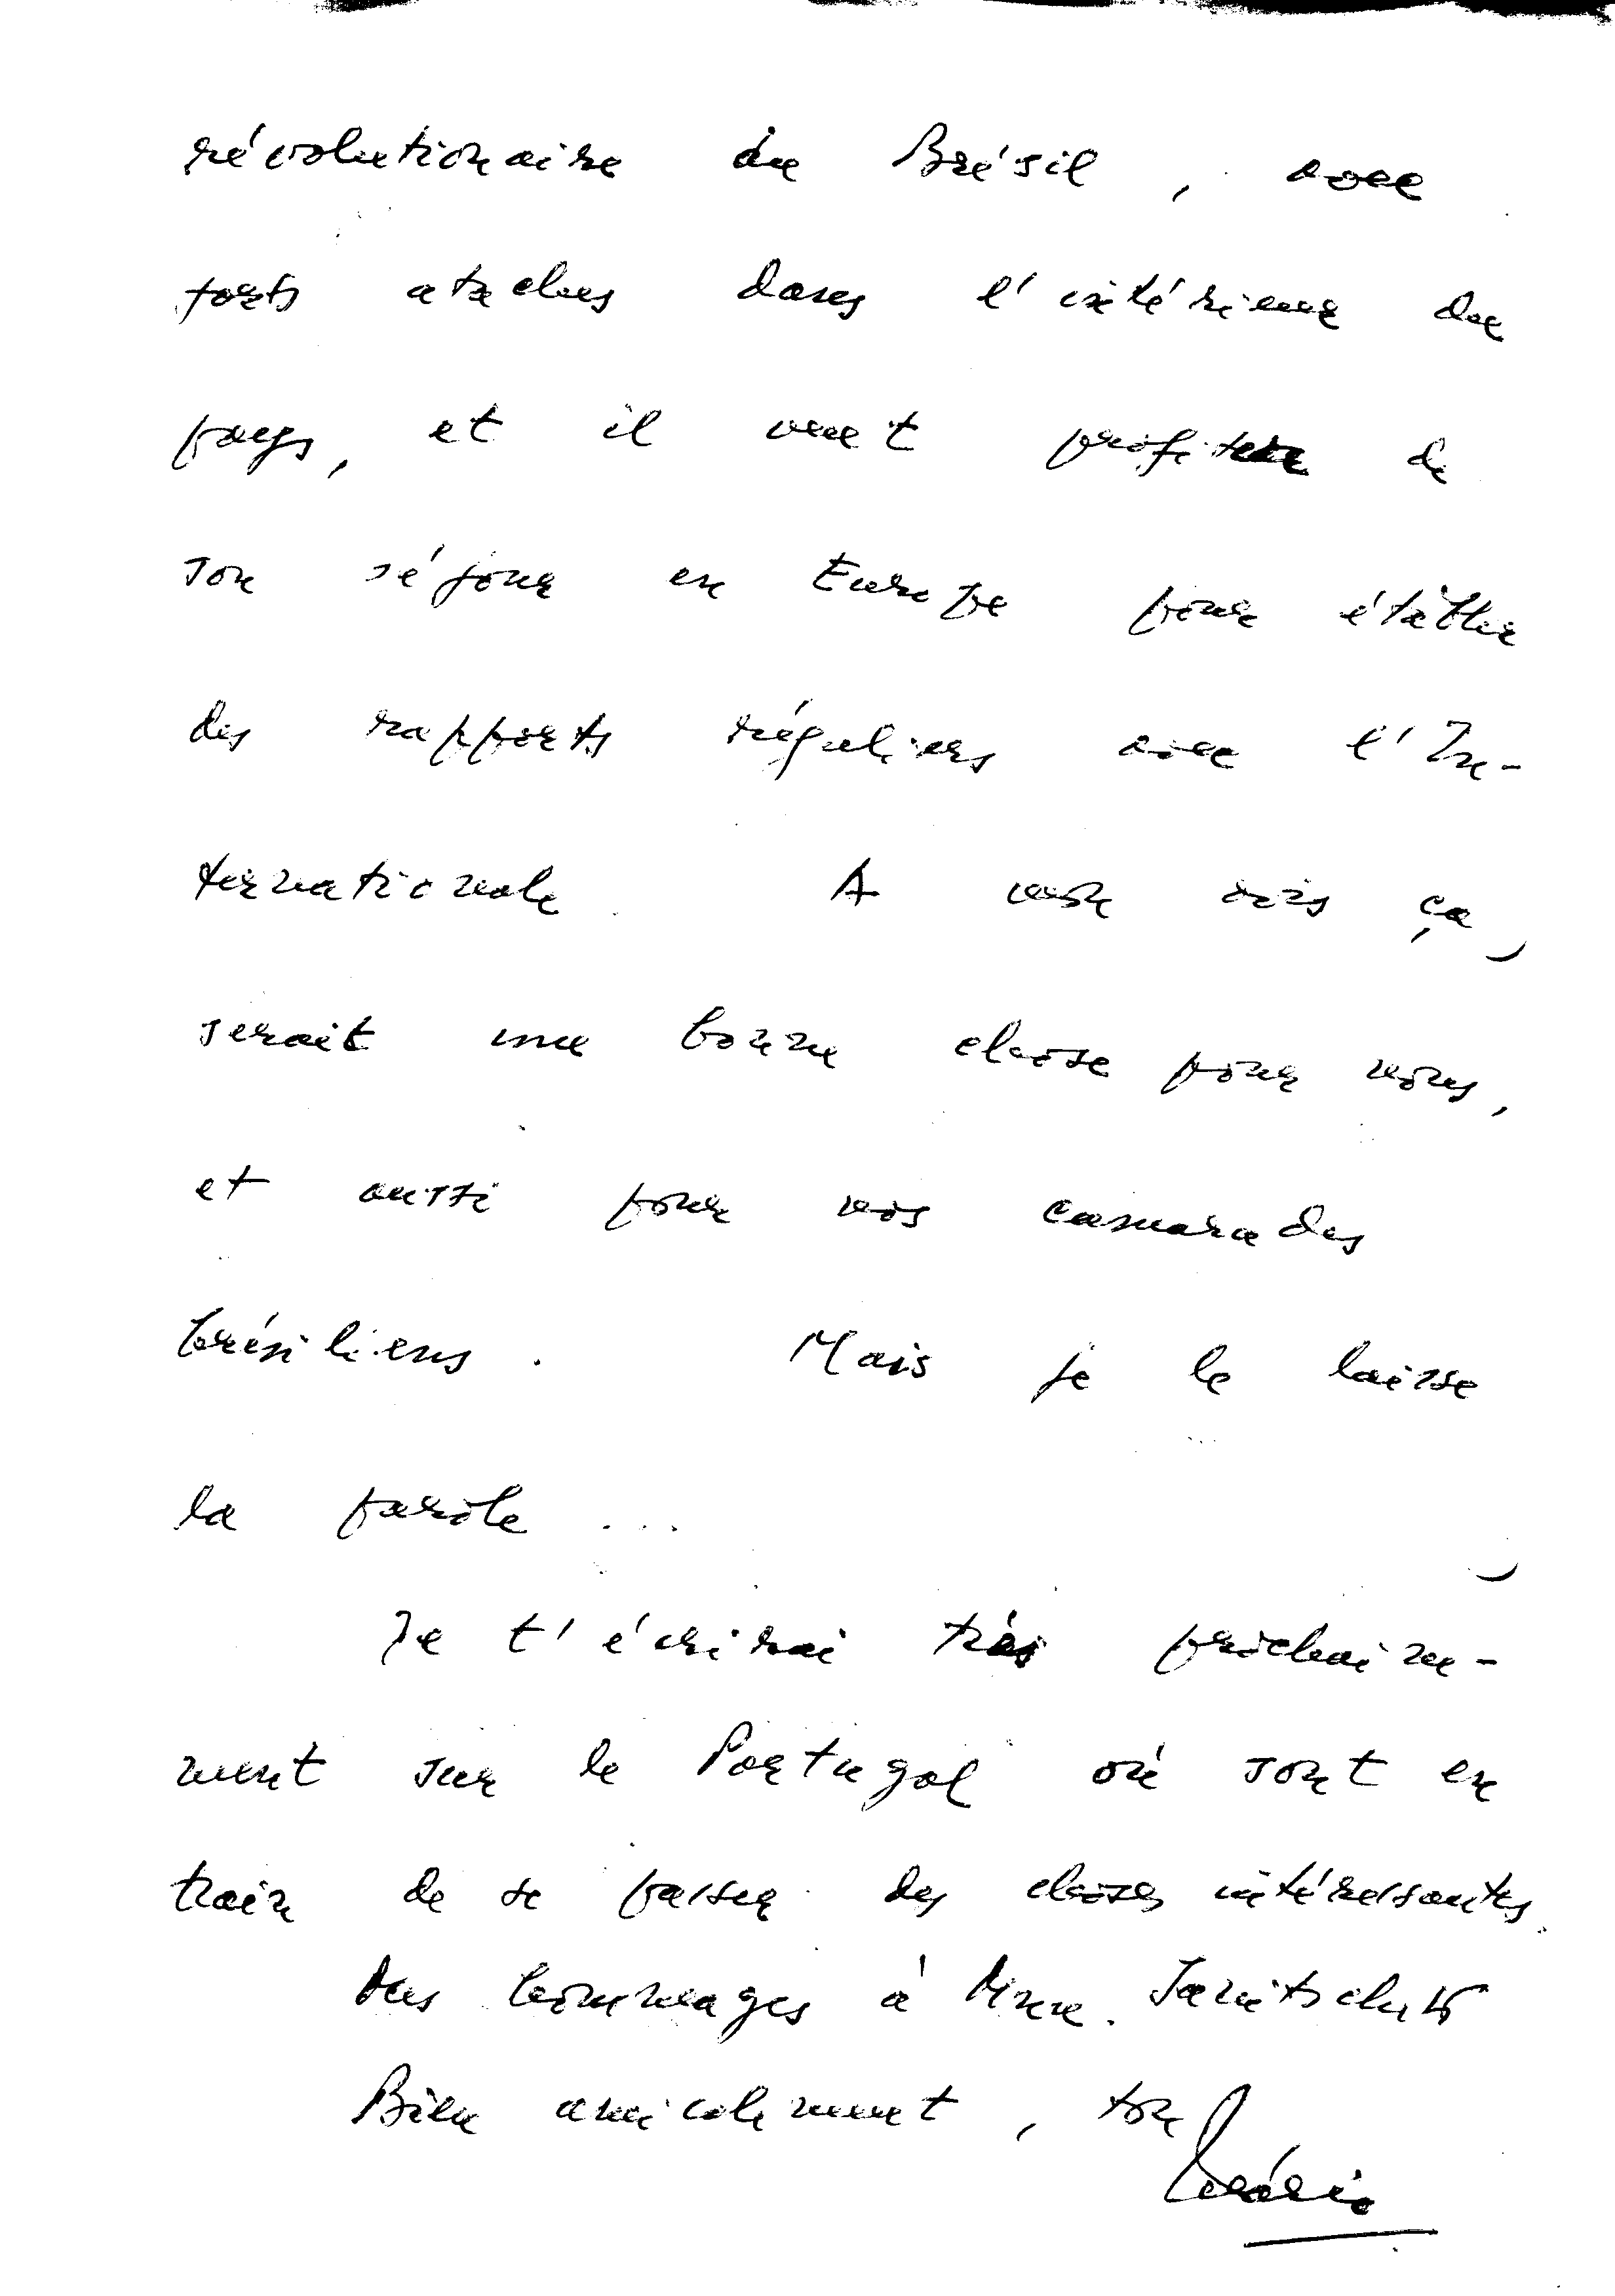 révolutionaire du Brésil, avec
forts ataches dans l'intérieur du
pays, et il veut profiter de
son séjour en Europe pour établir
des rapports réguliers avec l'In-
ternationale A mon avis ça
serait une bonne chose pour nous,
et aussi pour nos camarades
brésiliens. Mais je le laisse
la parole ...
Je t'écrirai très prochaine-
ment sur le Portugal où sont en
train de se passer des choses intéressantes.
Mes hommages à Mme. Janitschek
Bien amicalement, ton